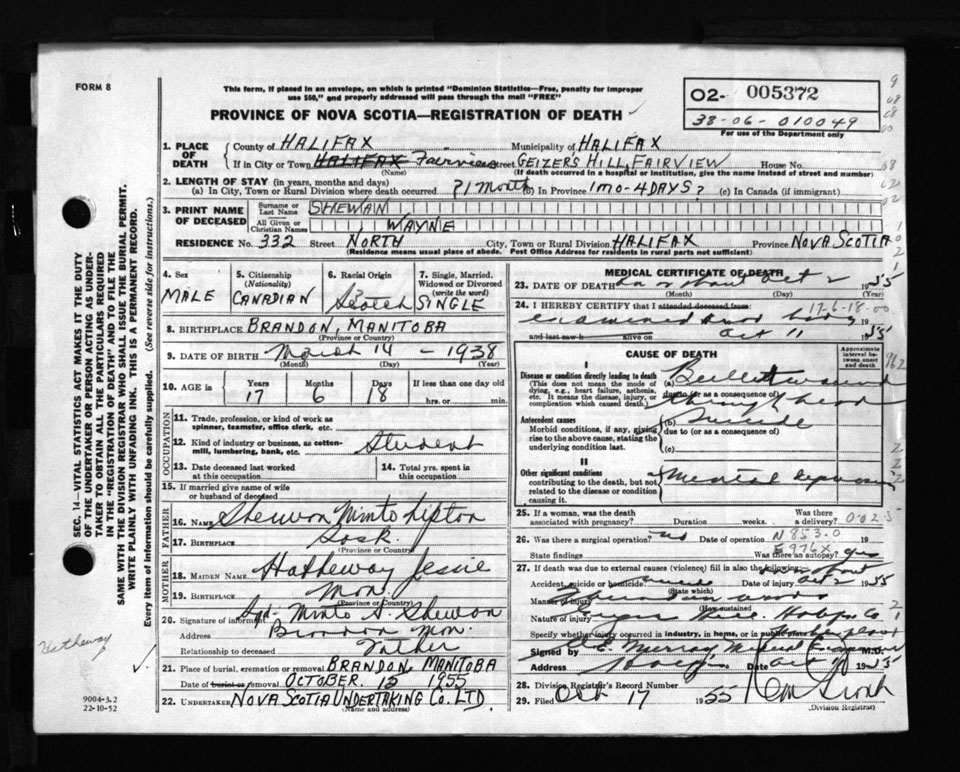 FORM 8
This form, if placed in an envelope, on which is printed "Dominion Statistics—Free, penalty for improper
use $50," and properly addressed will pass through the mail "FREE"
PROVINCE OF NOVA SCOTIA—REGISTRATION OF DEATH
02- 005372
38-06-010049
For use of the Department only
1. PLACE OF DEATH
County of HALIFAX Municipality of HALIFAX
If in City or Town HALIFAX Fairview Street GEIZERS HILL, FAIRVIEW House No.
(Name) (If death occurred in a hospital or institution, give the name instead of street and number)
2. LENGTH OF STAY (in years, months and days)
(a) In City, Town or Rural Division where death occurred ?1 Month (b) In Province 1MO-4DAYS? (c) In Canada (if immigrant)
3. PRINT NAME OF DECEASED
Surname or Last Name SHEWAN
All Given or Christian Names WAYNE
RESIDENCE No. 332 Street NORTH City, Town or Rural Division HALIFAX Province NOVA SCOTIA
(Residence means usual place of abode. Post Office Address for residents in rural parts not sufficient)
4. Sex MALE
5. Citizenship (Nationality) CANADIAN
6. Racial Origin Scotch
7. Single, Married, Widowed or Divorced (write the word) SINGLE
8. BIRTHPLACE BRANDON, MANITOBA
9. DATE OF BIRTH March 14 - 1938
(Month) (Day) (Year)
10. AGE in Years 17 Months 6 Days 18 If less than one day old hrs. or min.
OCCUPATION
11. Trade, profession, or kind of work as spinner, teamster, office clerk, etc.
12. Kind of industry or business, as cotton-mill, lumbering, bank, etc. Student
13. Date deceased last worked at this occupation
14. Total yrs. spent in this occupation
15. If married give name of wife or husband of deceased
FATHER
16. NAME Shewan Minto Lipton
17. BIRTHPLACE Sask.
(Province or Country)
MOTHER
18. MAIDEN NAME Hatheway Jessie
19. BIRTHPLACE Man.
(Province or Country)
20. Signature of informant Sgd- Minto A. Shewan
Address Brandon Man.
Relationship to deceased Father
21. Place of burial, cremation or removal BRANDON, MANITOBA
Date of burial or removal OCTOBER. 12 1955
22. UNDERTAKER NOVA SCOTIA UNDERTAKING CO. LTD.
(Name and address)
MEDICAL CERTIFICATE OF DEATH
23. DATE OF DEATH on or about Oct 2 1955
(Month) (Day) (Year)
24. I HEREBY CERTIFY that I attended deceased from:
examined dead body 19
and last saw h alive on Oct 11 1955
CAUSE OF DEATH
Approximate interval between onset and death
I
Disease or condition directly leading to death (a) Bullet wound
(This does not mean the mode of dying, e.g., heart failure, asthenia, etc. It means the disease, injury, or complication which caused death.)
due to (or as a consequence of)
through head
Antecedent causes (b) Suicide
Morbid conditions, if any, giving rise to the above cause, stating the underlying condition last.
due to (or as a consequence of)
(c)
II
Other significant conditions Mental depression
contributing to the death, but not related to the disease or condition causing it.
25. If a woman, was the death associated with pregnancy? Duration weeks. Was there a delivery?
26. Was there a surgical operation? no Date of operation 19
N 853.0
E 976X
State findings Was there an autopsy? yes
27. If death was due to external causes (violence) fill in also the following:
Accident, suicide or homicide? suicide Date of injury Oct 2 1955
(State which)
Manner of injury
(How sustained)
Nature of injury
Specify whether injury occurred in industry, in home, or in public place
Signed by Murray Medical Examiner M.D.
Address Halifax Date Oct 1955
28. Division Registrar's Record Number
29. Filed Oct 17 1955
(Division Registrar)
SEC. 14—VITAL STATISTICS ACT MAKES IT THE DUTY
OF THE UNDERTAKER OR PERSON ACTING AS UNDER-
TAKER TO OBTAIN ALL THE PARTICULARS REQUIRED
IN THE "REGISTRATION OF DEATH" AND TO FILE THE
SAME WITH THE DIVISION REGISTRAR WHO SHALL ISSUE THE BURIAL PERMIT.
WRITE PLAINLY WITH UNFADING INK. THIS IS A PERMANENT RECORD.
Every item of information should be carefully supplied. (See reverse side for instructions.)
Hatheway
9004-3.2
22-10-52